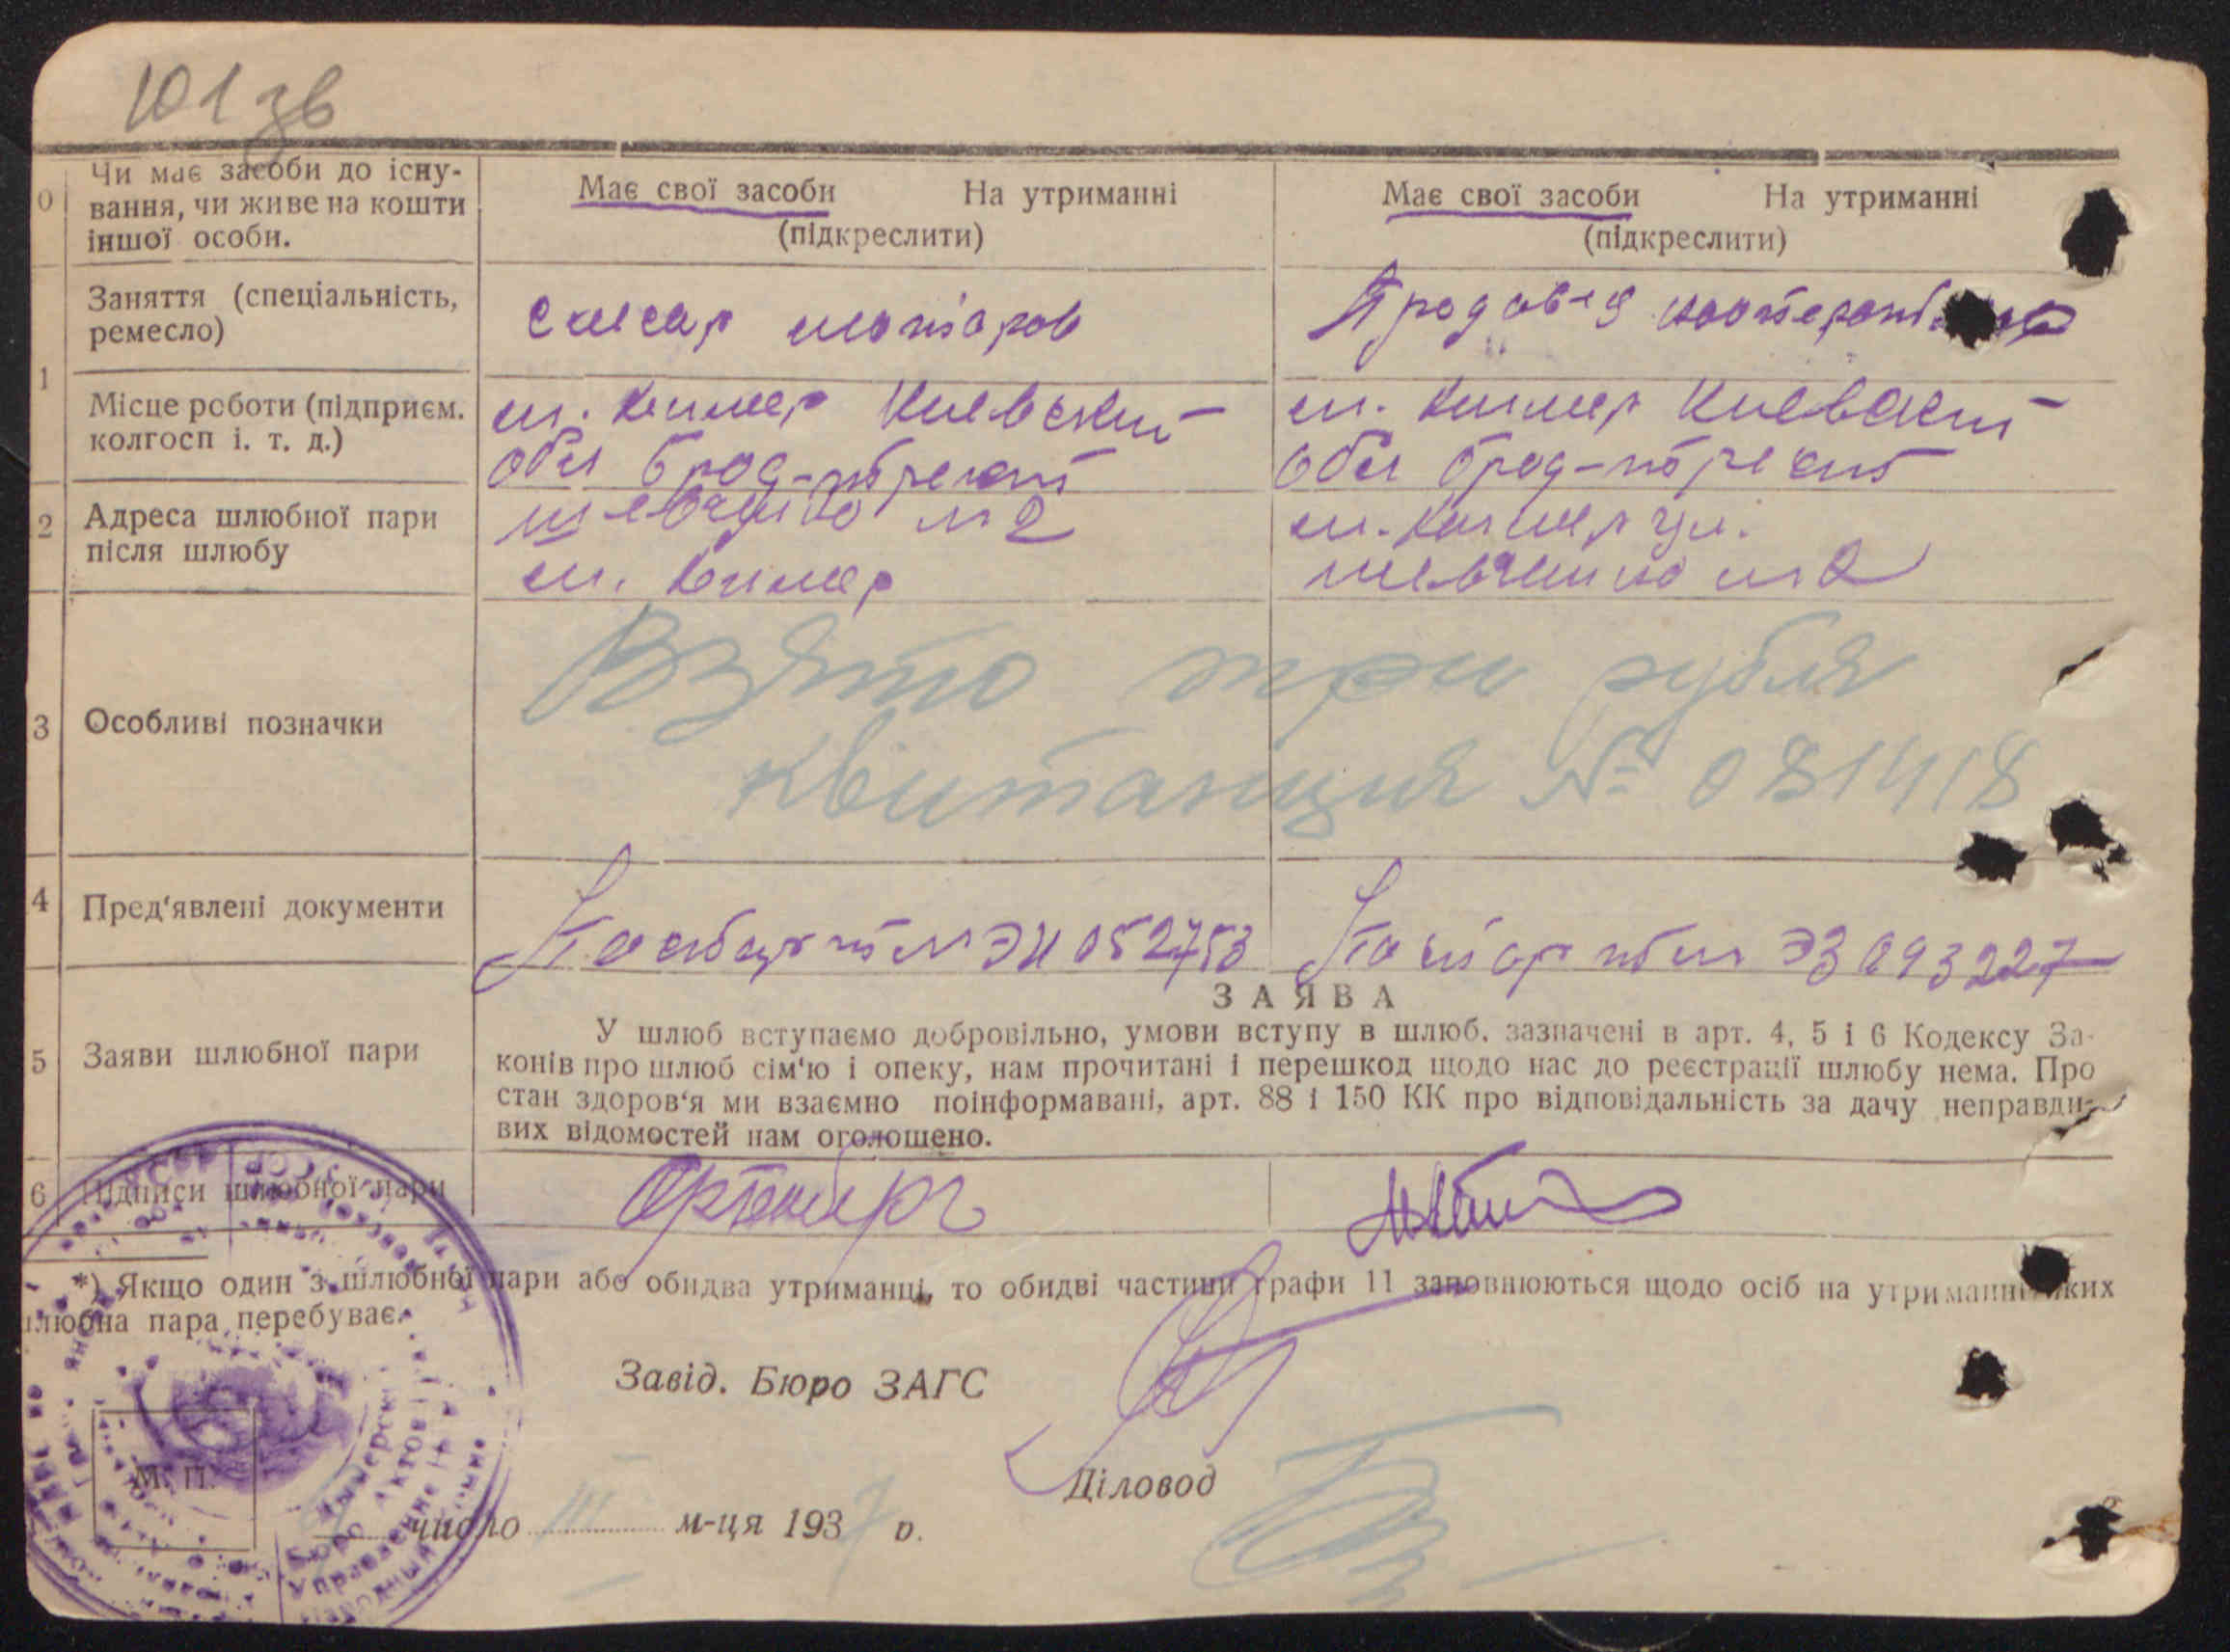 101 зв
0 Чи має засоби до існу-
вання, чи живе на кошти
іншої особи.
Має свої засоби На утриманні
(підкреслити)
Має свої засоби На утриманні
(підкреслити)
1 Заняття (спеціальність,
ремесло)
слесар
Місце роботи (підприєм.
колгосп і. т. д.)
м. Кимер Киевский
обл
м. Кимер
обл
2 Адреса шлюбної пари
після шлюбу
шевченко № 2
м. Кимер
м. Кимер ул.
шевченко № 2
3 Особливі позначки
Взято три рубля
Квитанция № 081418
4 Пред'явлені документи
Паспорт № ЭИ 052753
Паспорт № ЭЗ 093227
5 Заяви шлюбної пари
ЗАЯВА
У шлюб вступаємо добровільно, умови вступу в шлюб. зазначені в арт. 4, 5 і 6 Кодексу За-
конів про шлюб сім'ю і опеку, нам прочитані і перешкод щодо нас до реєстрації шлюбу нема. Про
стан здоров'я ми взаємно поінформавані, арт. 88 і 150 КК про відповідальність за дачу неправди-
вих відомостей нам оголошено.
6 Підписи шлюбної пари
*) Якщо один з шлюбної пари або обидва утриманці, то обидві частини графи 11 заповнюються щодо осіб на утриманні яких
шлюбна пара перебуває.
Завід. Бюро ЗАГС
Діловод
М. П.
число III м-ця 1937 р.
Бюро Актов
Управление